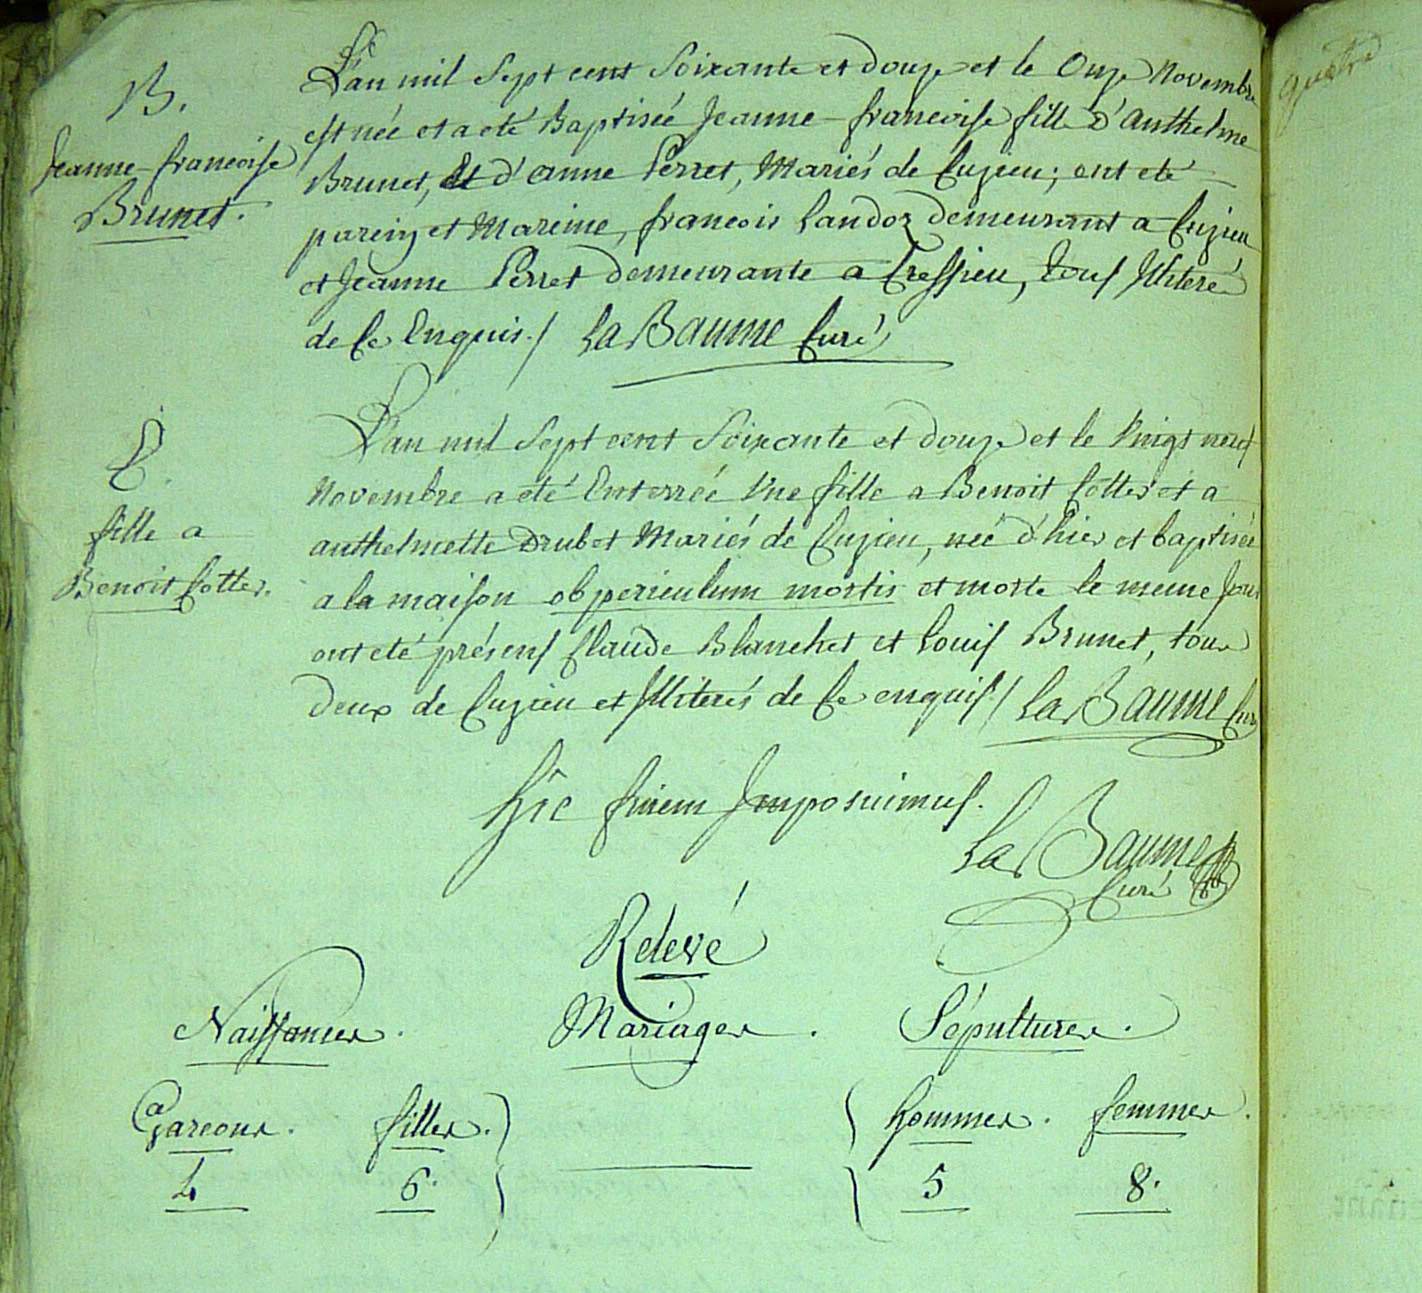 B.
Jeanne-francoise
Brunet.
L'an mil Sept cent Soixante et douze et le Onze Novembre
est née et a eté Baptisée Jeanne-francoise fille d'Anthelme
Brunet, Et d'anne Perret, Mariés de Cuzieu; ont eté
parein et Mareine, francois Landoz demeurant a Cuzieu
et Jeanne Perret demeurante a Cressieu, tous Illiteré
de Ce Enquis./ La Baume Curé
E.
fille a
Benoit Cottes.
L'an mil Sept cent Soixante et douze et le Vingt neuf
Novembre a eté Enterrée Une fille a Benoit Cottes et a
anthelmette Drubet Mariés de Cuzieu, neé d'hier et baptisée
a la maison ob periculum mortis et morte le meme Jour
ont eté présens Claude Blanchet et Louis Brunet, tous
Deux de Cuzieu et Illiterés de Ce enquis/ La Baume Curé
hîc finem Imposuimus.
La Baume
Curé
Relevé
Naissances. Mariages. Sépultures.
Garcons. filles. hommes. femmes.
4 6. 5 8.
quatre